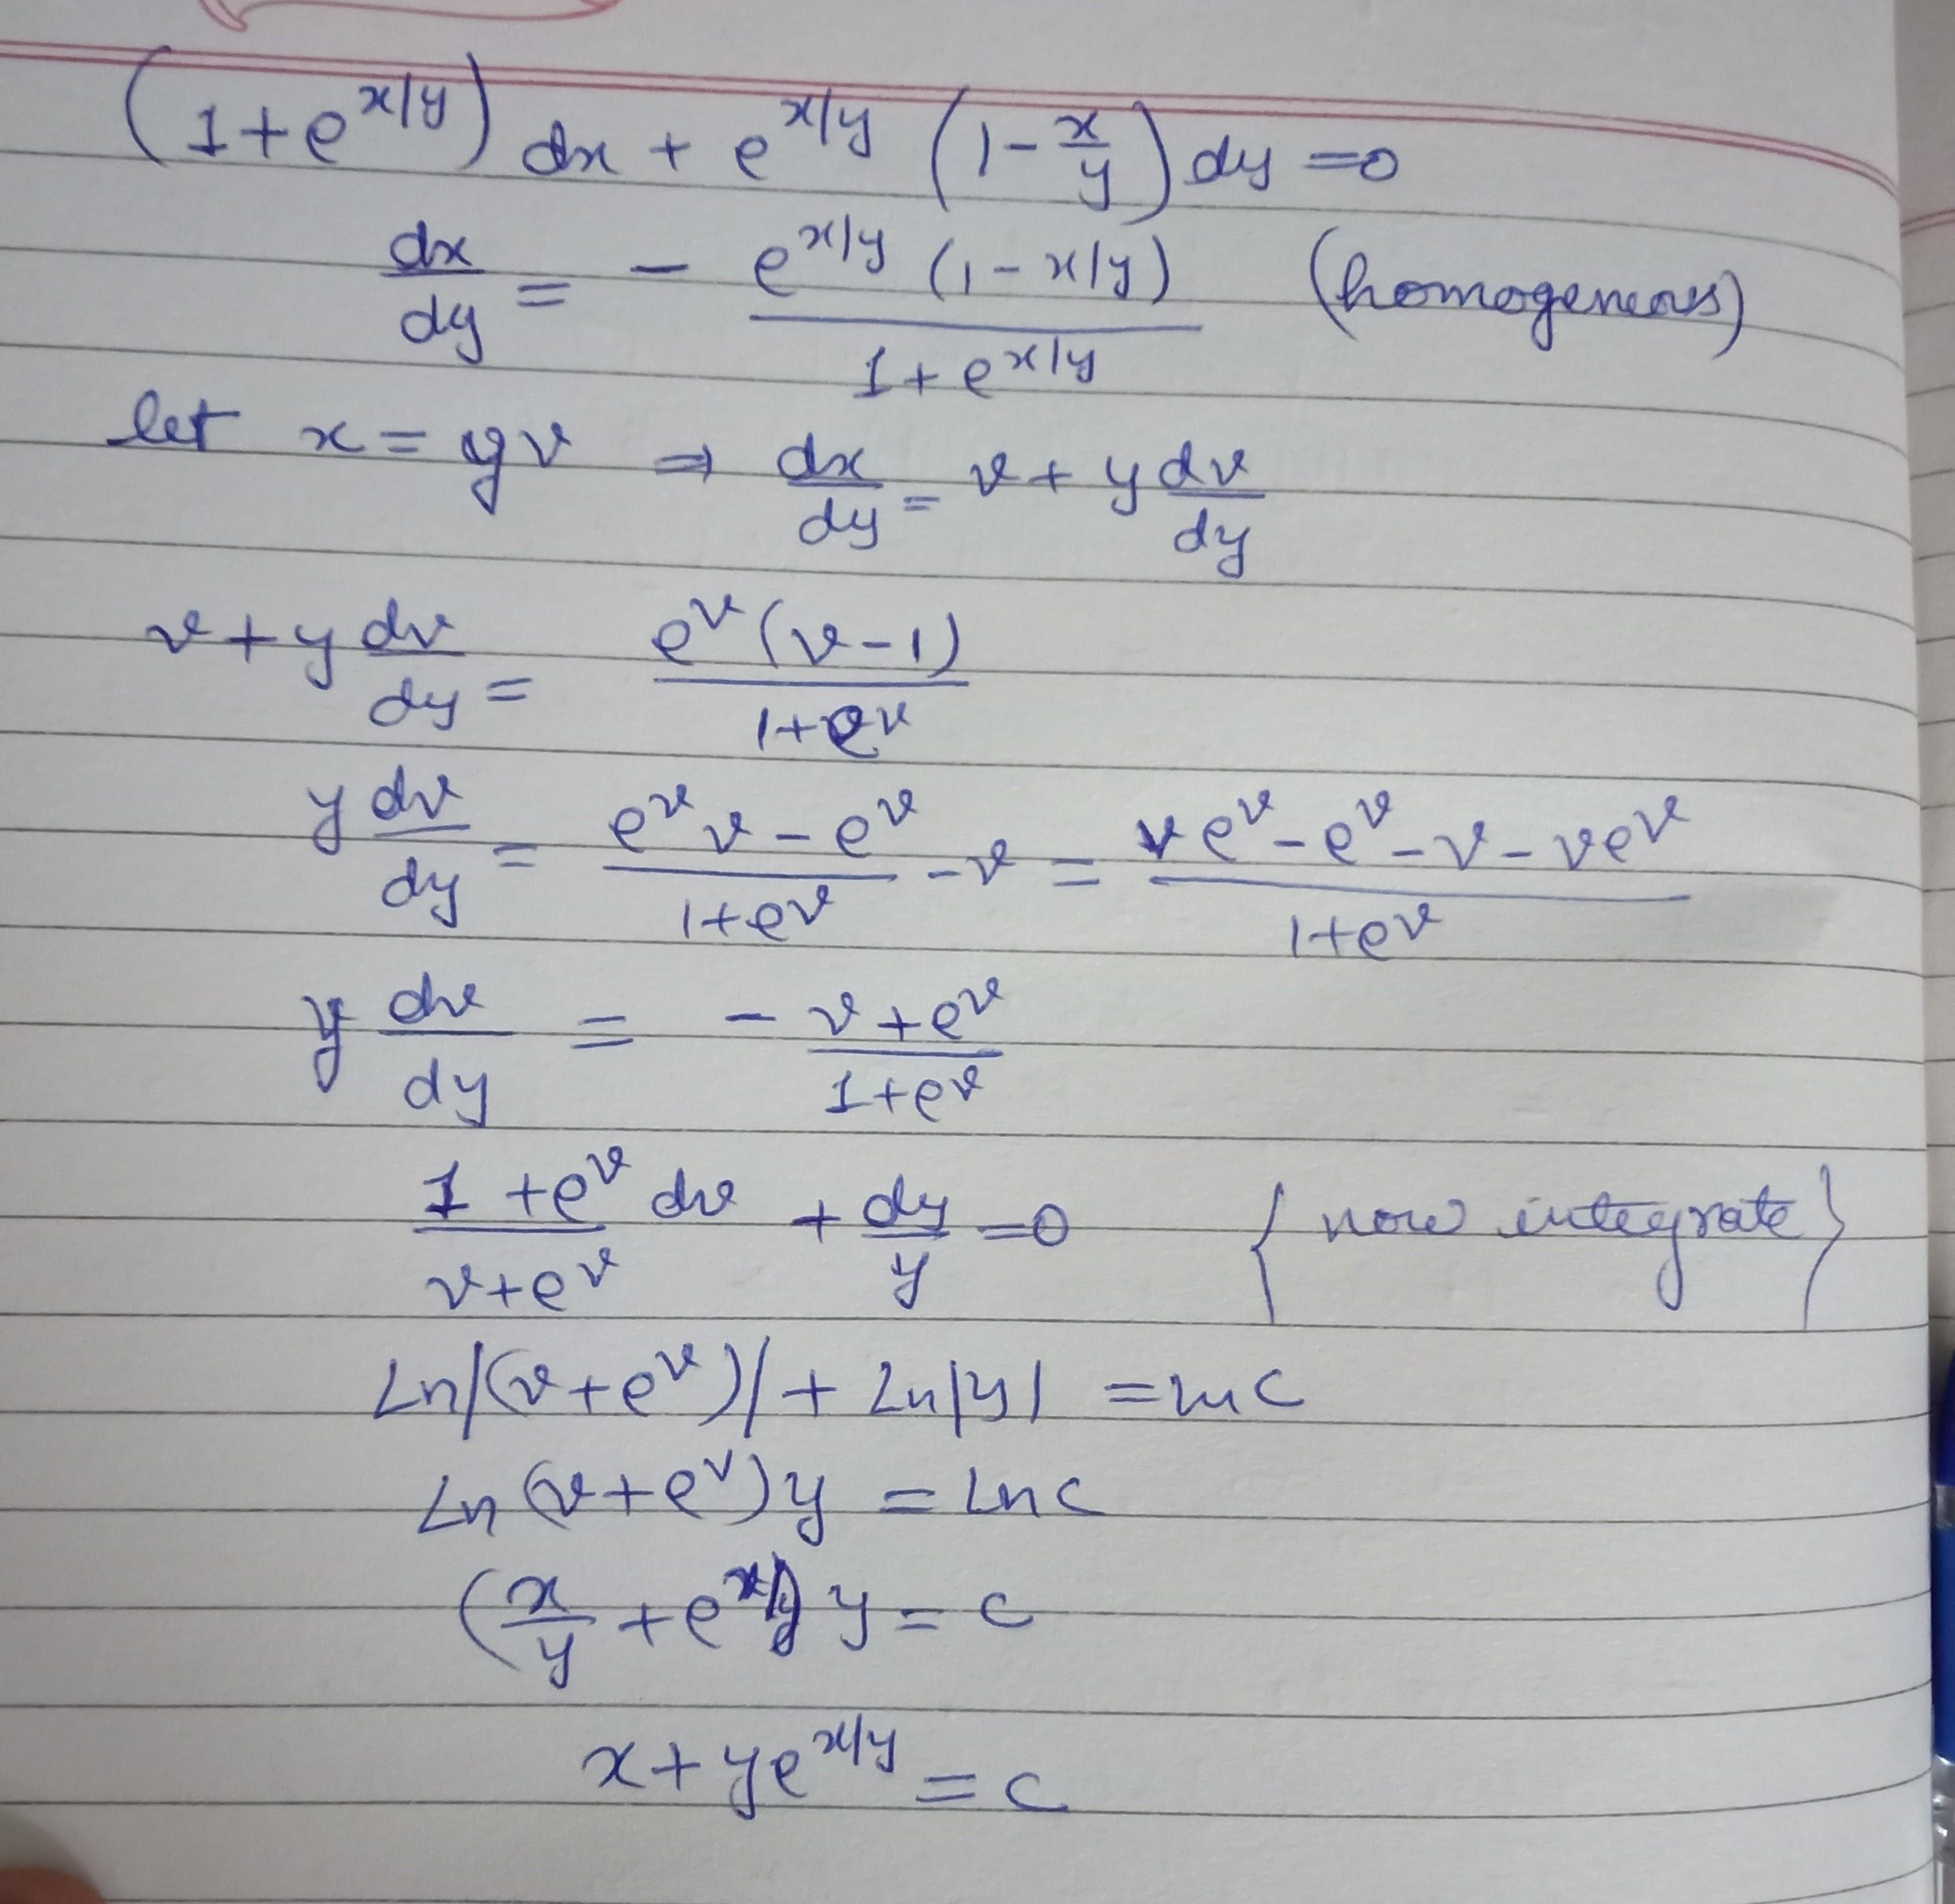 (1+e^{x/y}) dx + e^{x/y} (1-\frac{x}{y}) dy =0
\frac{dx}{dy} = - \frac{e^{x/y} (1-x/y)}{1+e^{x/y}} (homogeneous)
let x = yv ⇒ \frac{dx}{dy} = v + y \frac{dv}{dy}
v + y \frac{dv}{dy} = \frac{e^v (v-1)}{1+e^v}
y \frac{dv}{dy} = \frac{e^v v - e^v}{1+e^v} - v = \frac{ve^v - e^v - v - ve^v}{1+e^v}
y \frac{dv}{dy} = - \frac{v+e^v}{1+e^v}
\frac{1+e^v}{v+e^v} dv + \frac{dy}{y} =0 {now integrate}
Ln|(v+e^v)| + Ln|y| = ln c
Ln (v+e^v) y = Ln c
(\frac{x}{y} + e^{x/y}) y = c
x + ye^{x/y} = c